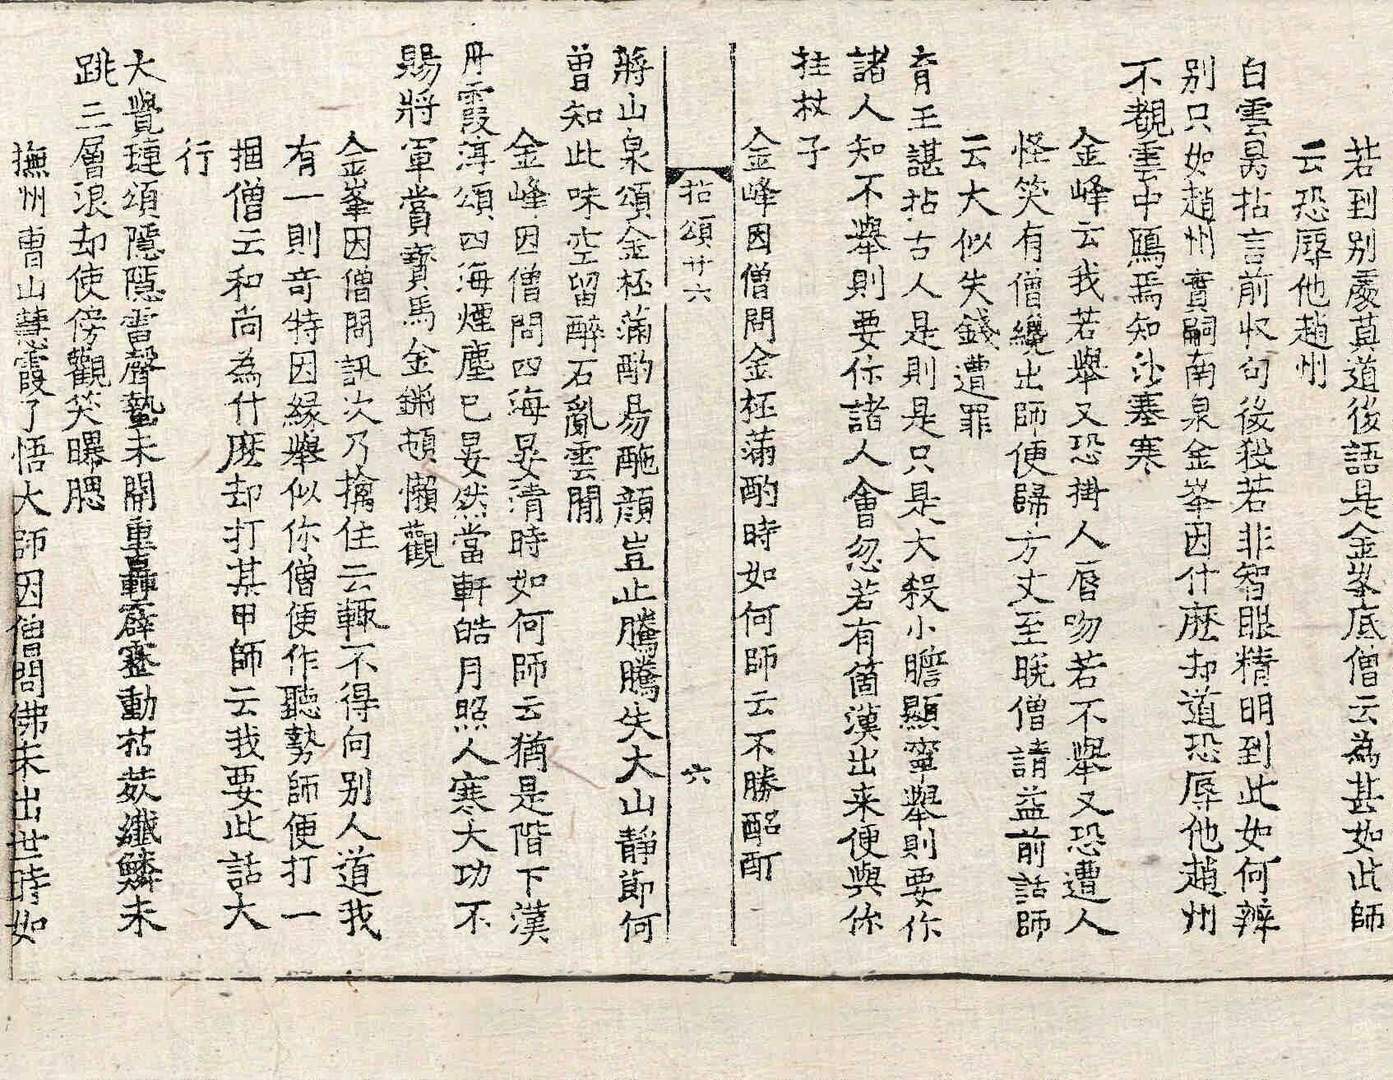 若到別處莫道後語是金峯底僧云為甚如此師
云恐辱他趙州
白雲昺拈言前收句後殺若非智眼精明到此如何辨
別只如趙州實嗣南泉金峯因什麽却道恐辱他趙州
不覩雲中鴈焉知沙塞寒
金峰云我若舉又恐掛人唇吻若不舉又恐遭人
怪笑有僧纔出師便歸方丈至晚僧請益前話師
云大似失錢遭罪
育王諶拈古人是則是只是大殺小膽顯寧舉則要你
諸人知不舉則要你諸人會忽若有箇漢出来便與你
拄杖子
金峰因僧問金柸滿酌時如何師云不勝酩酊
拈頌廿六 六
蔣山泉頌金柸滿酌易酡顔豈止騰騰失大山靜節何
曾知此味空留醉石亂雲間
金峰因僧問四海晏清時如何師云猶是階下漢
丹霞淳頌四海煙塵已晏然當軒皓月照人寒大功不
賜將軍賞寶馬金鏘頓懶觀
金峯因僧問訊次乃擒住云輙不得向别人道我
有一則奇特因緣舉似你僧便作聽勢師便打一
掴僧云和尚為什麽却打某甲師云我要此話大
行
大覺璉頌隱隱雷聲蟄未開重轟霹靂動枯荄纖鱗未
跳三層浪却使傍觀笑曝腮
撫州曹山慧霞了悟大師因僧問佛未出世時如